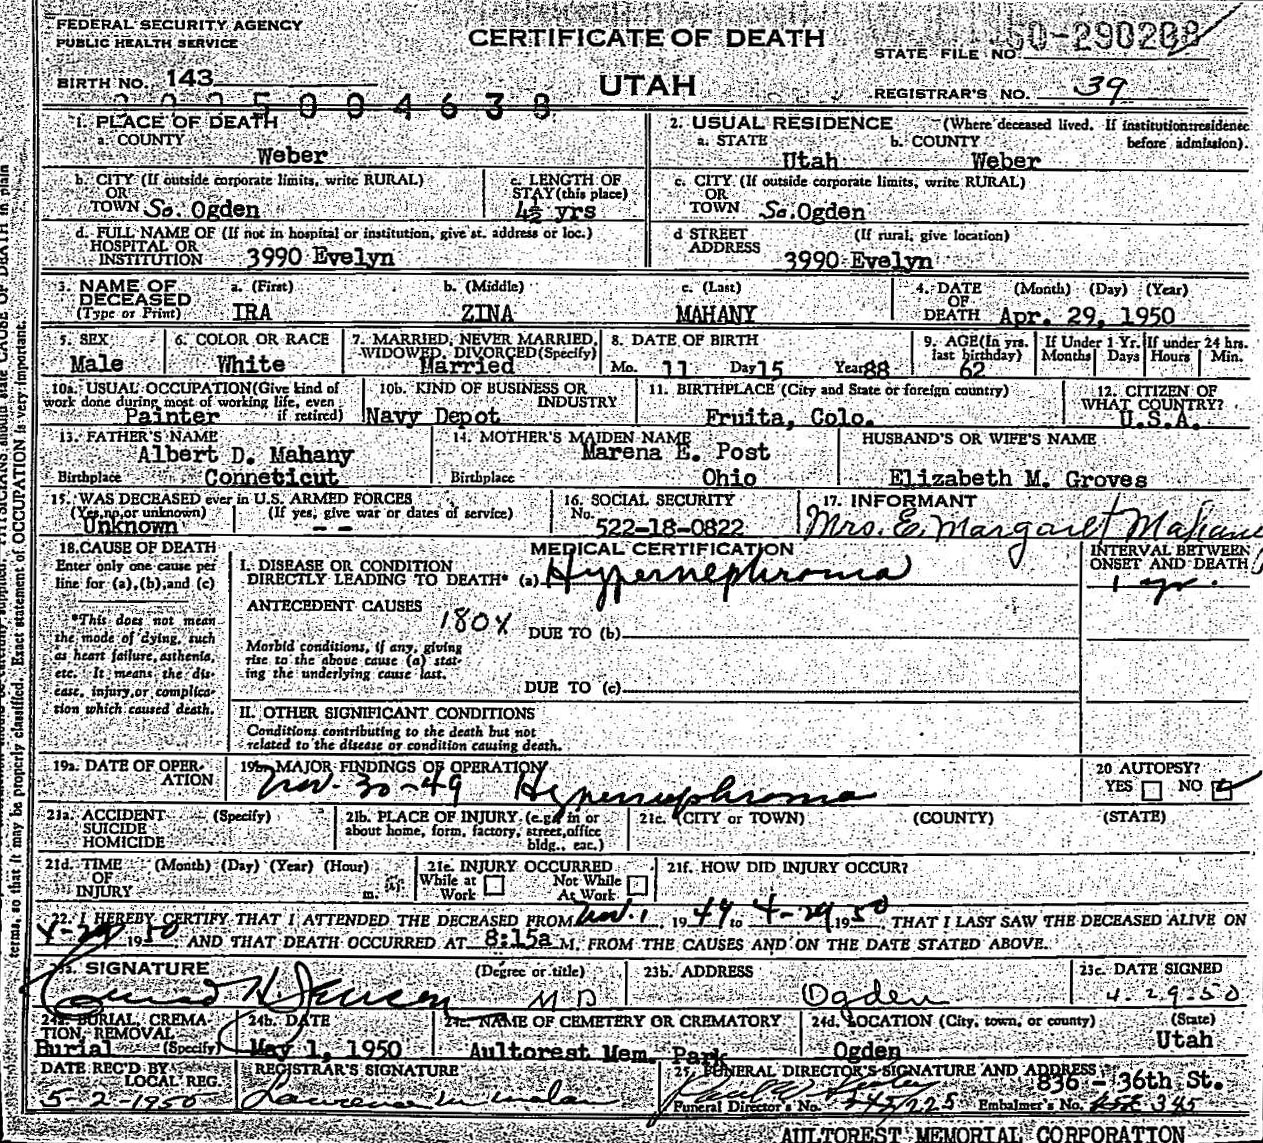 FEDERAL SECURITY AGENCY
PUBLIC HEALTH SERVICE
CERTIFICATE OF DEATH
STATE FILE NO. 50-290208
BIRTH NO. 143
UTAH
REGISTRAR'S NO. 39
1. PLACE OF DEATH
a. COUNTY
Weber
2. USUAL RESIDENCE (Where deceased lived. If institution: residence before admission).
a. STATE b. COUNTY
Utah Weber
b. CITY (If outside corporate limits, write RURAL)
OR
TOWN So. Ogden
c. LENGTH OF
STAY (this place)
4½ yrs
c. CITY (If outside corporate limits, write RURAL)
OR
TOWN So. Ogden
d. FULL NAME OF (If not in hospital or institution, give st. address or loc.)
HOSPITAL OR
INSTITUTION 3990 Evelyn
d STREET (If rural, give location)
ADDRESS
3990 Evelyn
3. NAME OF DECEASED
(Type or Print)
a. (First) b. (Middle) c. (Last)
IRA ZINA MAHANY
4. DATE OF DEATH (Month) (Day) (Year)
Apr. 29, 1950
5. SEX
Male
6. COLOR OR RACE
White
7. MARRIED, NEVER MARRIED,
WIDOWED, DIVORCED (Specify)
Married
8. DATE OF BIRTH
Mo. 11 Day 15 Year 88
9. AGE (In yrs.
last birthday)
62
If Under 1 Yr.
Months Days
If under 24 hrs.
Hours Min.
10a. USUAL OCCUPATION (Give kind of
work done during most of working life, even
if retired)
Painter
10b. KIND OF BUSINESS OR
INDUSTRY
Navy Depot
11. BIRTHPLACE (City and State or foreign country)
Fruita, Colo.
12. CITIZEN OF
WHAT COUNTRY?
U.S.A.
13. FATHER'S NAME
Albert D. Mahany
Birthplace Conneticut
14. MOTHER'S MAIDEN NAME
Marena E. Post
Birthplace Ohio
HUSBAND'S OR WIFE'S NAME
Elizabeth M. Groves
15. WAS DECEASED ever in U.S. ARMED FORCES
(Yes, no, or unknown) (If yes, give war or dates of service)
Unknown --
16. SOCIAL SECURITY
No. 522-18-0822
17. INFORMANT
Mrs. E. Margaret Mahany
18. CAUSE OF DEATH
Enter only one cause per
line for (a), (b), and (c)
*This does not mean
the mode of dying, such
as heart failure, asthenia,
etc. It means the dis-
ease, injury, or complica-
tion which caused death.
MEDICAL CERTIFICATION
I. DISEASE OR CONDITION
DIRECTLY LEADING TO DEATH* (a) Hypernephroma
INTERVAL BETWEEN
ONSET AND DEATH
1 yr.
ANTECEDENT CAUSES
180X DUE TO (b)
Morbid conditions, if any, giving
rise to the above cause (a) stat-
ing the underlying cause last.
DUE TO (c)
II. OTHER SIGNIFICANT CONDITIONS
Conditions contributing to the death but not
related to the disease or condition causing death.
19a. DATE OF OPER-
ATION
19b. MAJOR FINDINGS OF OPERATION
Nov. 30-49 Hypernephroma
20 AUTOPSY?
YES NO
21a. ACCIDENT (Specify)
SUICIDE
HOMICIDE
21b. PLACE OF INJURY (e.g., in or
about home, form, factory, street, office
bldg., etc.)
21c. (CITY or TOWN) (COUNTY) (STATE)
21d. TIME (Month) (Day) (Year) (Hour)
OF
INJURY m.
21e. INJURY OCCURRED
While at Work Not While At Work
21f. HOW DID INJURY OCCUR?
22. I HEREBY CERTIFY THAT I ATTENDED THE DECEASED FROM Nov. 1, 1949 to 4-29 1950, THAT I LAST SAW THE DECEASED ALIVE ON
4-29 1950, AND THAT DEATH OCCURRED AT 8:15a M, FROM THE CAUSES AND ON THE DATE STATED ABOVE.
23. SIGNATURE (Degree or title)
Jensen M D
23b. ADDRESS
Ogden
23c. DATE SIGNED
4-29-50
24a. BURIAL, CREMA-
TION, REMOVAL
Burial (Specify)
24b. DATE
May 1, 1950
24c. NAME OF CEMETERY OR CREMATORY
Aultorest Mem. Park
24d. LOCATION (City, town, or county) (State)
Ogden Utah
DATE REC'D BY
LOCAL REG.
5-2-1950
REGISTRAR'S SIGNATURE
25. FUNERAL DIRECTOR'S SIGNATURE AND ADDRESS
836 - 36th St.
Funeral Director's No. Embalmer's No. 345
AULTOREST MEMORIAL CORPORATION